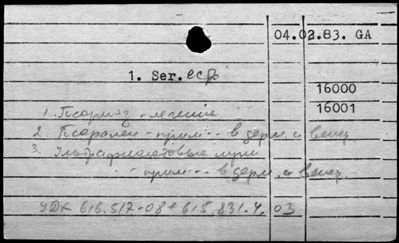 04.02.83. GA
1. Ser. есф
16000
16001
1. Псориаз - лечение
2. Псорален - прим. - в дерм. и венер.
3. Ультрафиолетовые лучи
- прим. - в дерм. и венер.
УДК 616.517-08+615.831.4.03